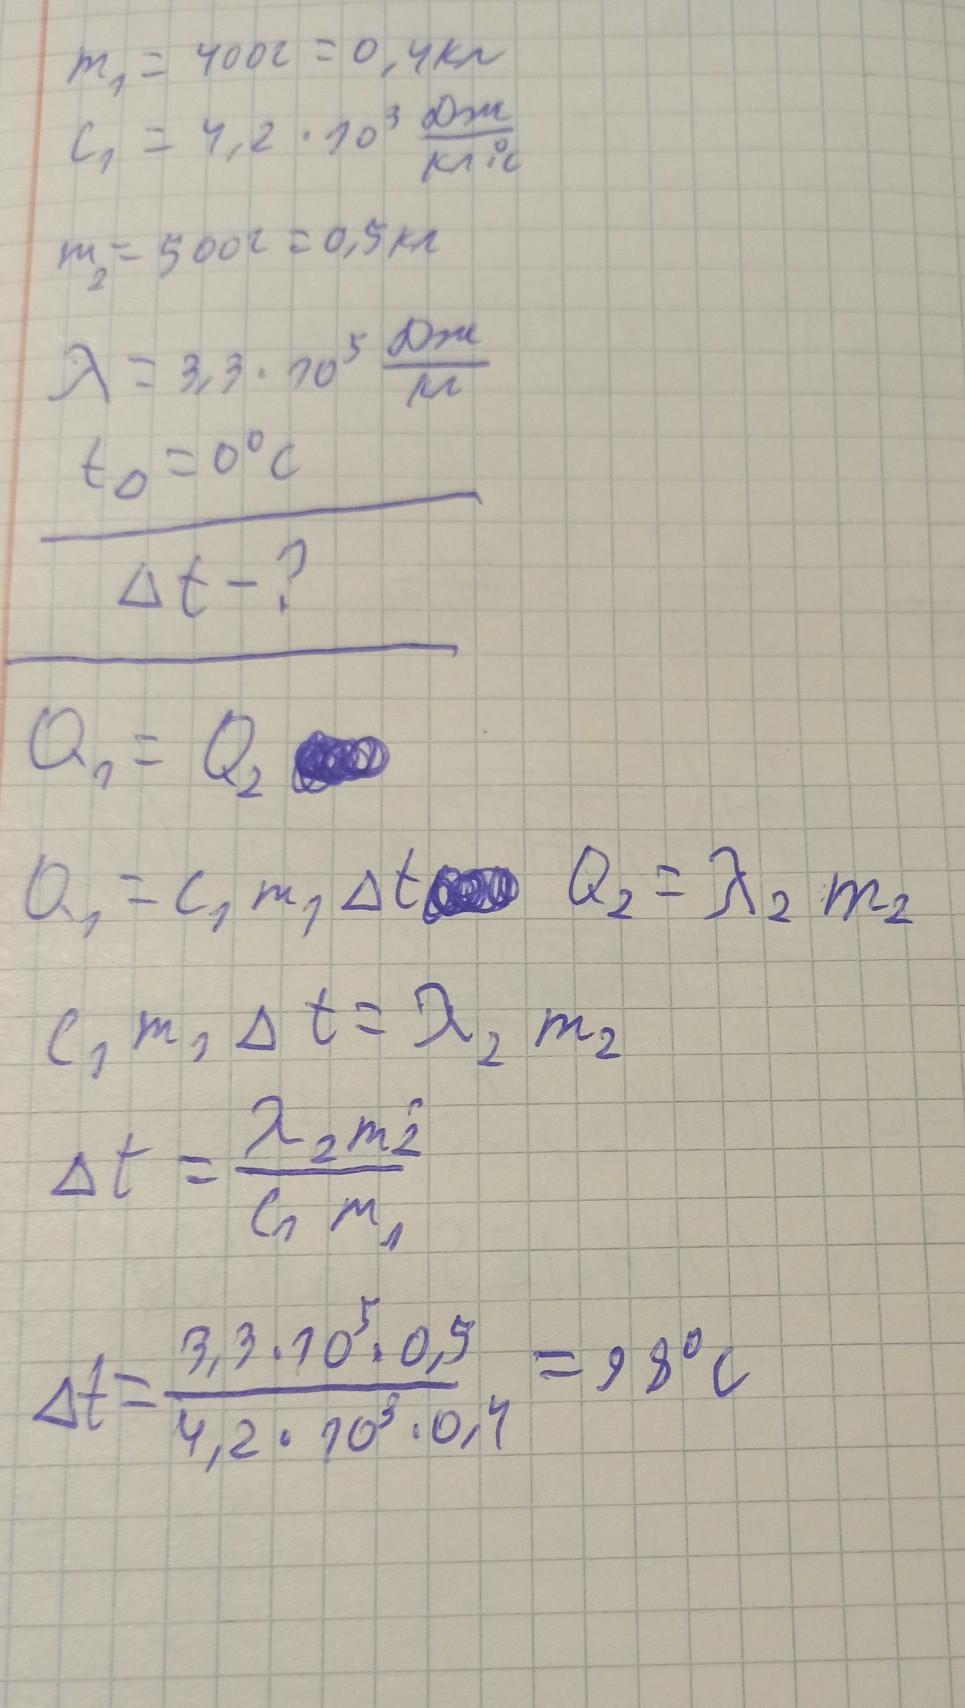 m₁ = 400г = 0,4кг
c₁ = 4,2 · 10³ Дж/кг·°с
m₂ = 500г = 0,5кг
λ = 3,3 · 10⁵ Дж/кг
t₀ = 0°С
Δt - ?
Q₁ = Q₂
Q₁ = c₁ m₁ Δt Q₂ = λ₂ m₂
c₁ m₁ Δt = λ₂ m₂
Δt = λ₂ m₂ / c₁ m₁
Δt = 3,3 · 10⁵ · 0,5 / 4,2 · 10³ · 0,4 = 98°С